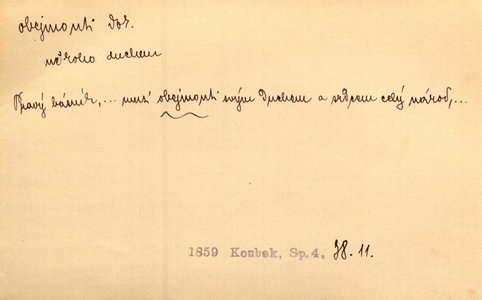 obejmouti dok.
někoho duchem
Pravý básník,... musí obejmouti svým duchem a srdcem celý národ,...
1859 Koubek, Sp.4. 38.11.